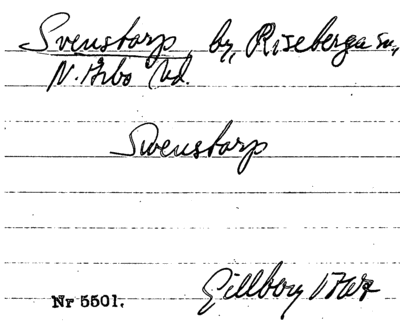 Svenstorp, by, Riseberga sn,
N. Åsbo hd.
Swenstorp
Gillberg
Nr 5501.